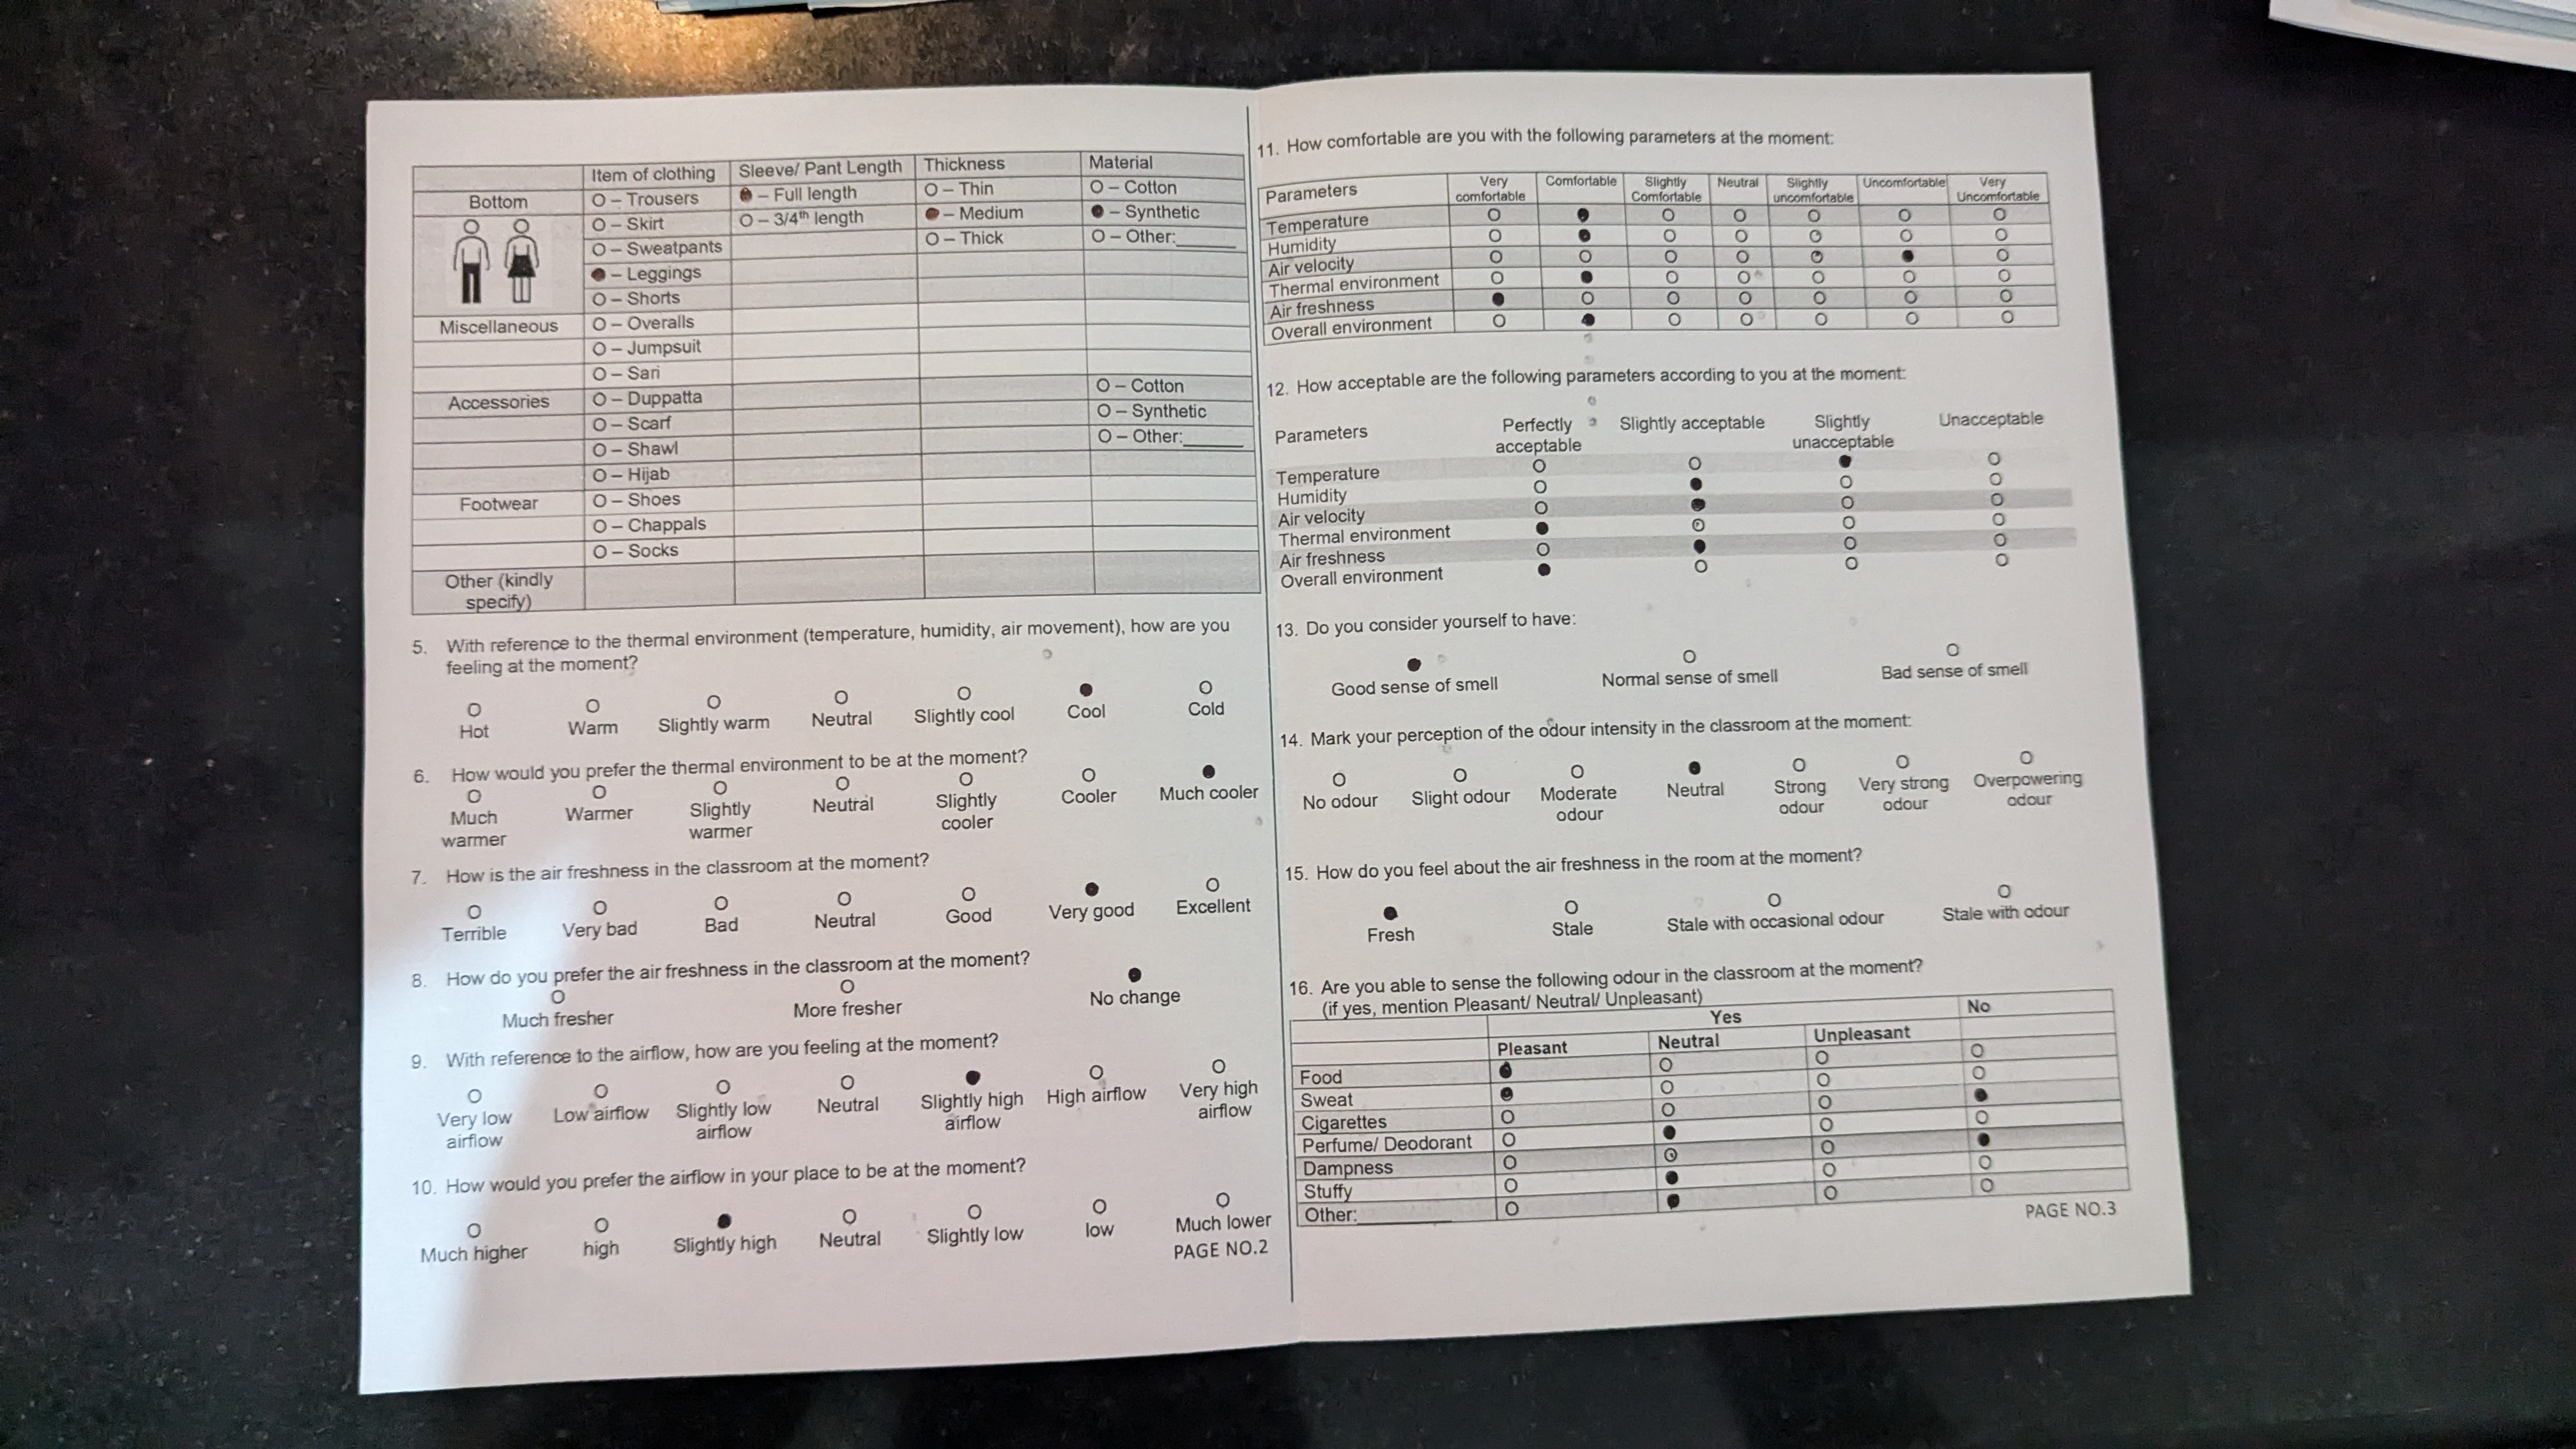 Item of clothing Sleeve/ Pant Length Thickness Material
Bottom O – Trousers ● – Full length O – Thin O – Cotton
O – Skirt O – 3/4th length ● – Medium ● – Synthetic
O – Sweatpants O – Thick O – Other:______
● – Leggings
O – Shorts
Miscellaneous O – Overalls
O – Jumpsuit
O – Sari
Accessories O – Duppatta O – Cotton
O – Scarf O – Synthetic
O – Shawl O – Other:______
O – Hijab
Footwear O – Shoes
O – Chappals
O – Socks
Other (kindly
specify)
5. With reference to the thermal environment (temperature, humidity, air movement), how are you
feeling at the moment?
O O O O O ● O
Hot Warm Slightly warm Neutral Slightly cool Cool Cold
6. How would you prefer the thermal environment to be at the moment?
O O O O O O ●
Much Warmer Slightly Neutral Slightly Cooler Much cooler
warmer warmer cooler
7. How is the air freshness in the classroom at the moment?
O O O O O ● O
Terrible Very bad Bad Neutral Good Very good Excellent
8. How do you prefer the air freshness in the classroom at the moment?
O O ●
Much fresher More fresher No change
9. With reference to the airflow, how are you feeling at the moment?
O O O O ● O O
Very low Low airflow Slightly low Neutral Slightly high High airflow Very high
airflow airflow airflow airflow
10. How would you prefer the airflow in your place to be at the moment?
O O ● O O O O
Much higher high Slightly high Neutral Slightly low low Much lower
PAGE NO.2
11. How comfortable are you with the following parameters at the moment:
Parameters Very Comfortable Slightly Neutral Slightly Uncomfortable Very
comfortable Comfortable uncomfortable Uncomfortable
Temperature O ● O O O O O
Humidity O ● O O O O O
Air velocity O O O O O ● O
Thermal environment O ● O O O O O
Air freshness ● O O O O O O
Overall environment O ● O O O O O
12. How acceptable are the following parameters according to you at the moment:
Parameters Perfectly Slightly acceptable Slightly Unacceptable
acceptable unacceptable
Temperature O O ● O
Humidity O ● O O
Air velocity O ● O O
Thermal environment ● O O O
Air freshness O ● O O
Overall environment ● O O O
13. Do you consider yourself to have:
● O O
Good sense of smell Normal sense of smell Bad sense of smell
14. Mark your perception of the odour intensity in the classroom at the moment:
O O O ● O O O
No odour Slight odour Moderate Neutral Strong Very strong Overpowering
odour odour odour odour
15. How do you feel about the air freshness in the room at the moment?
● O O O
Fresh Stale Stale with occasional odour Stale with odour
16. Are you able to sense the following odour in the classroom at the moment?
(if yes, mention Pleasant/ Neutral/ Unpleasant)
Yes No
Pleasant Neutral Unpleasant
Food ● O O O
Sweat ● O O O
Cigarettes O O O ●
Perfume/ Deodorant O ● O O
Dampness O O O ●
Stuffy O ● O O
Other:__________ O ● O O
PAGE NO.3